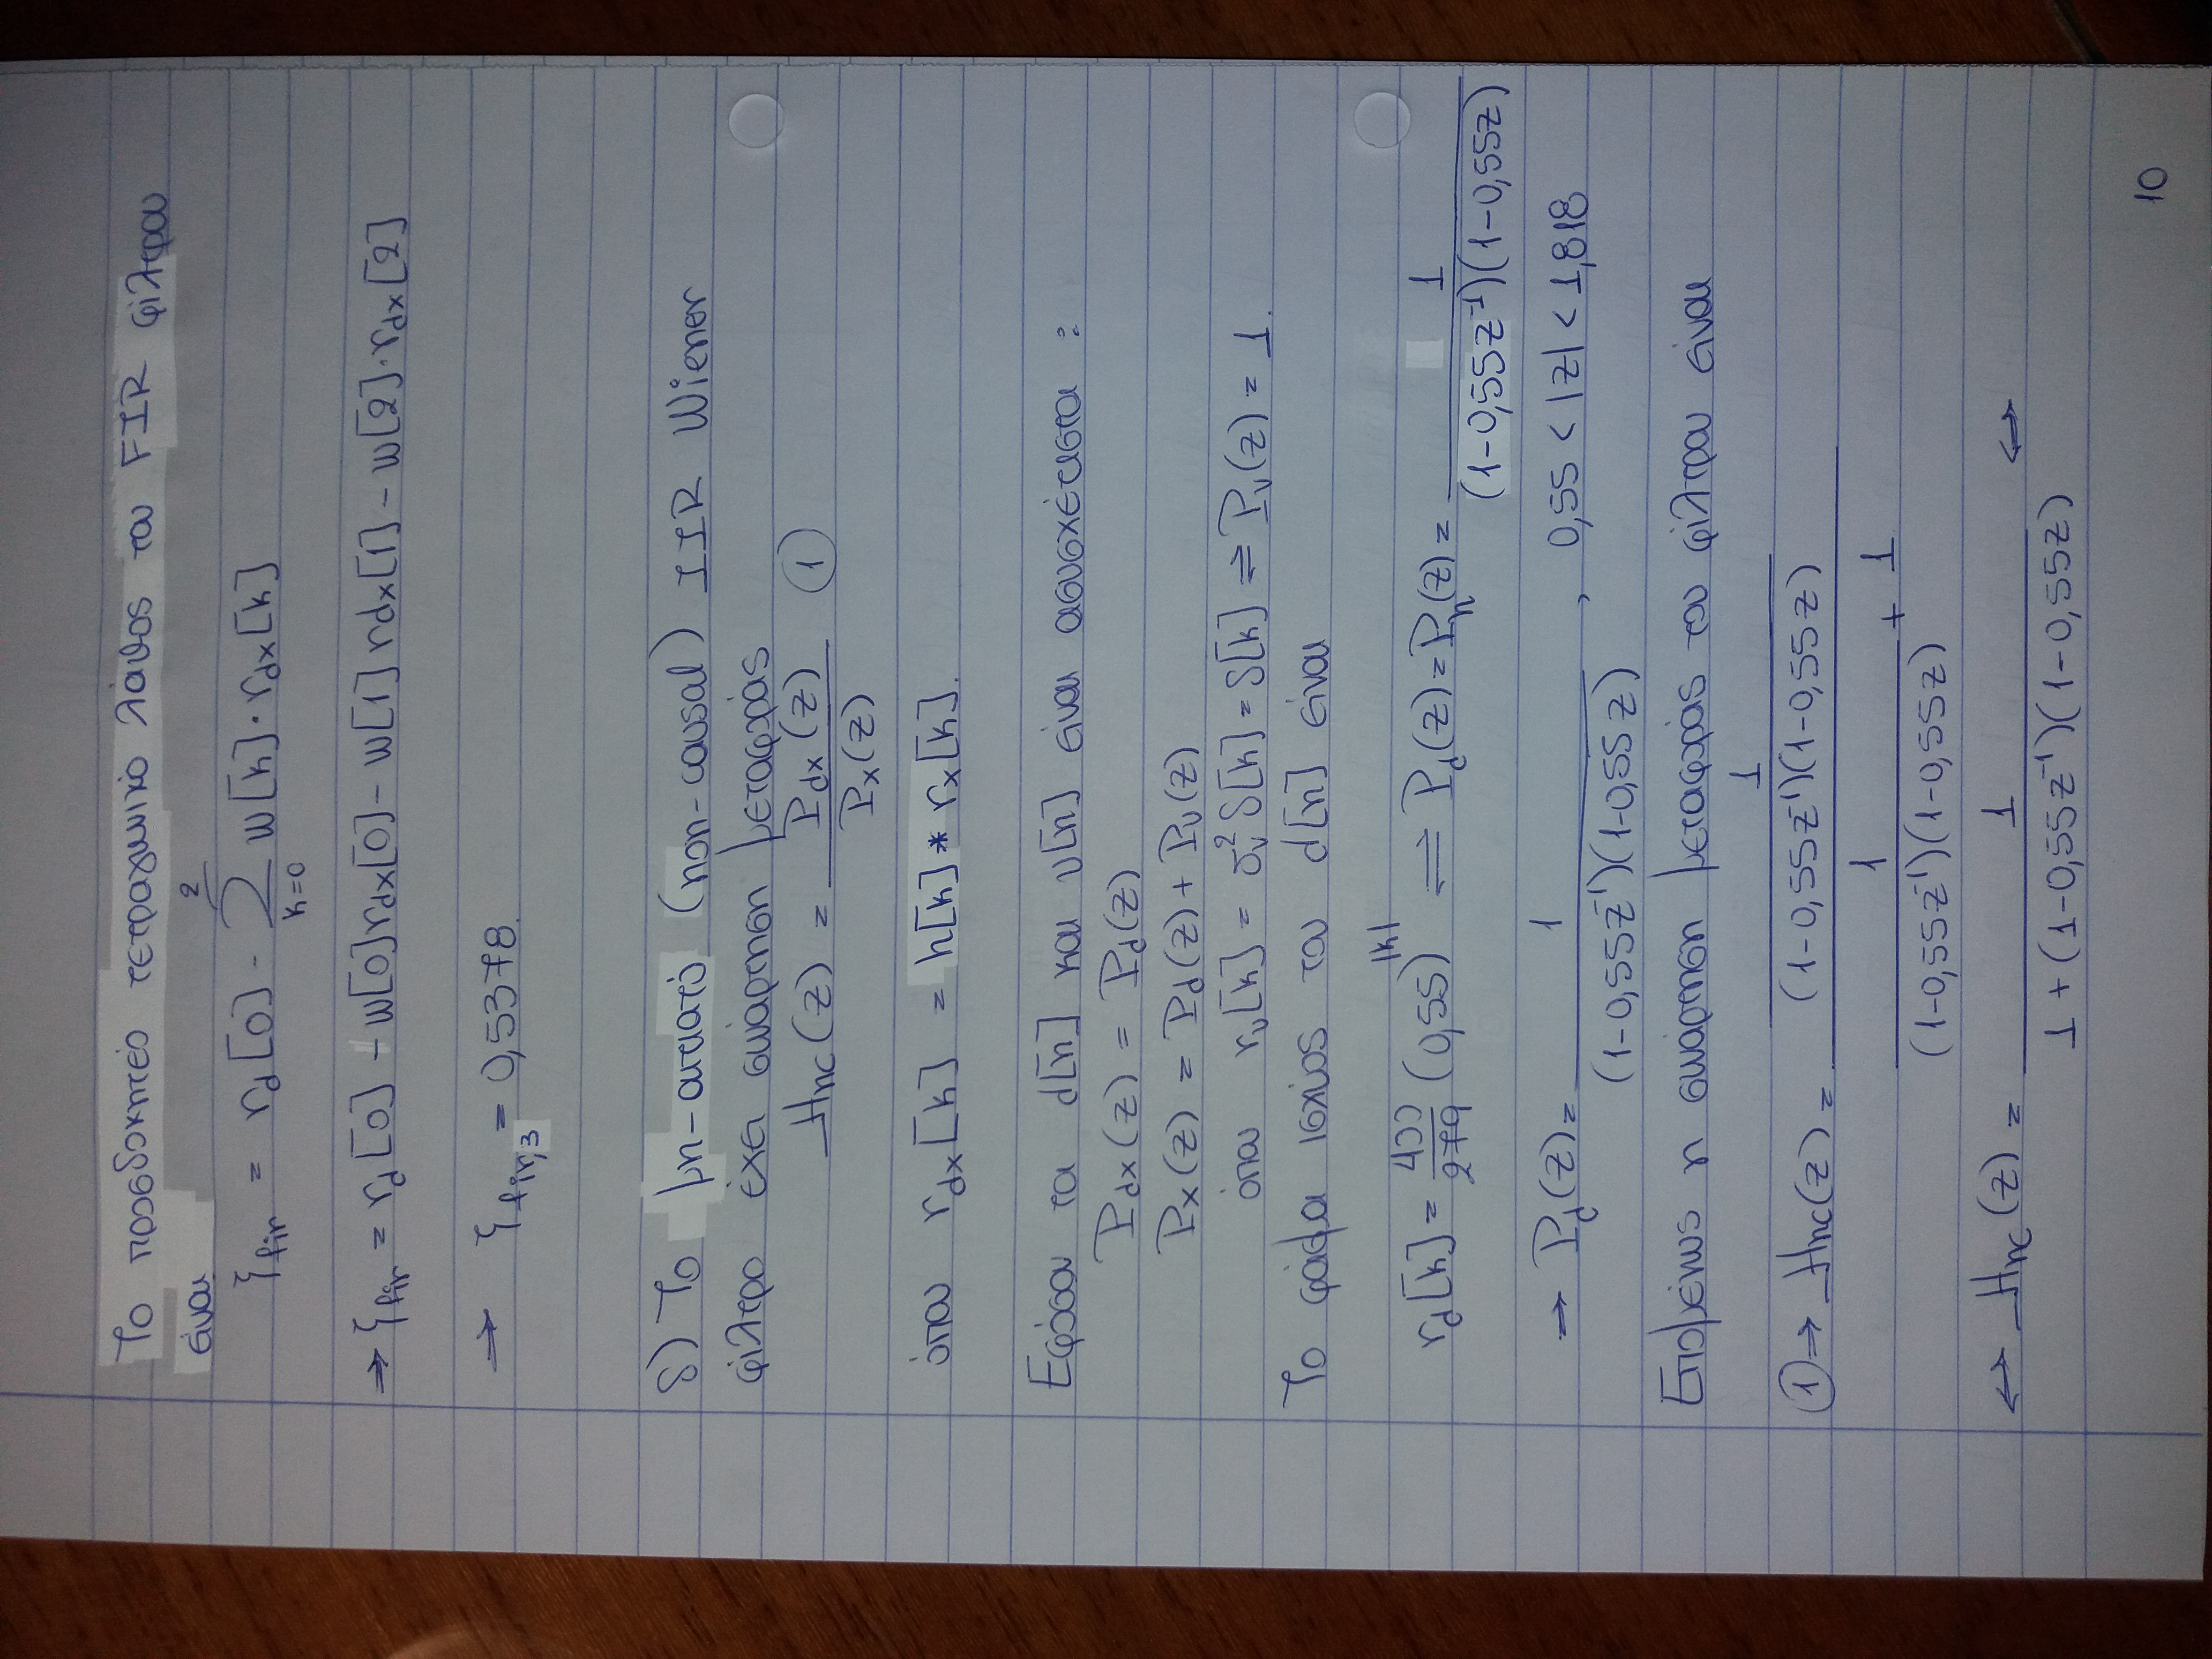 Το προσδοκητέο τετραγωνικό λάθος του FIR φίλτρου
είναι
ξ_fir = r_d[0] - Σ_{k=0}^{2} w[k]·r_dx[k]
⇒ ξ_fir = r_d[0] - w[0]r_dx[0] - w[1]r_dx[1] - w[2]·r_dx[2]
⇒ ξ_fir,3 = 0,5378.
δ) Το μη-αιτιατό (non-causal) IIR Wiener
φίλτρο έχει συνάρτηση μεταφοράς
Hnc(z) = P_dx(z) / P_x(z) ①
όπου r_dx[k] = h[k] * r_x[k].
Εφόσον τα d[n] και v[n] είναι ασυσχέτιστα :
P_dx(z) = P_d(z)
P_x(z) = P_d(z) + P_v(z)
όπου r_v[k] = σ_v^2 δ[k] = δ[k] ⇌ P_v(z) = 1.
Το φάσμα ισχύος του d[n] είναι
r_d[k] = 400/279 (0,55)^|k| ⇌ P_d(z) = P_h(z) = 1 / (1-0,55z^-1)(1-0,55z)
⇒ P_d(z) = 1 / (1-0,55z^-1)(1-0,55z) , 0,55 < |z| < 1,818
Επομένως η συνάρτηση μεταφοράς του φίλτρου είναι
① ⇒ Hnc(z) = (1 / (1-0,55z^-1)(1-0,55z)) / (1 / (1-0,55z^-1)(1-0,55z) + 1)
⇔ Hnc(z) = 1 / 1 + (1-0,55z^-1)(1-0,55z) ⇔
10